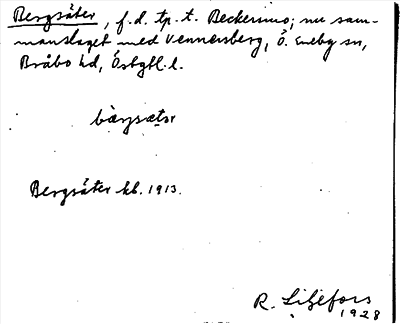 Bergsäter, f.d. tp. t. Beckersmo; nu sam-
manslaget med Vennersberg, Ö. Eneby sn,
Bråbo hd, Östgtl. l.
bærjsætər
Bergsäter kb. 1913.
R. Liljefors
1928